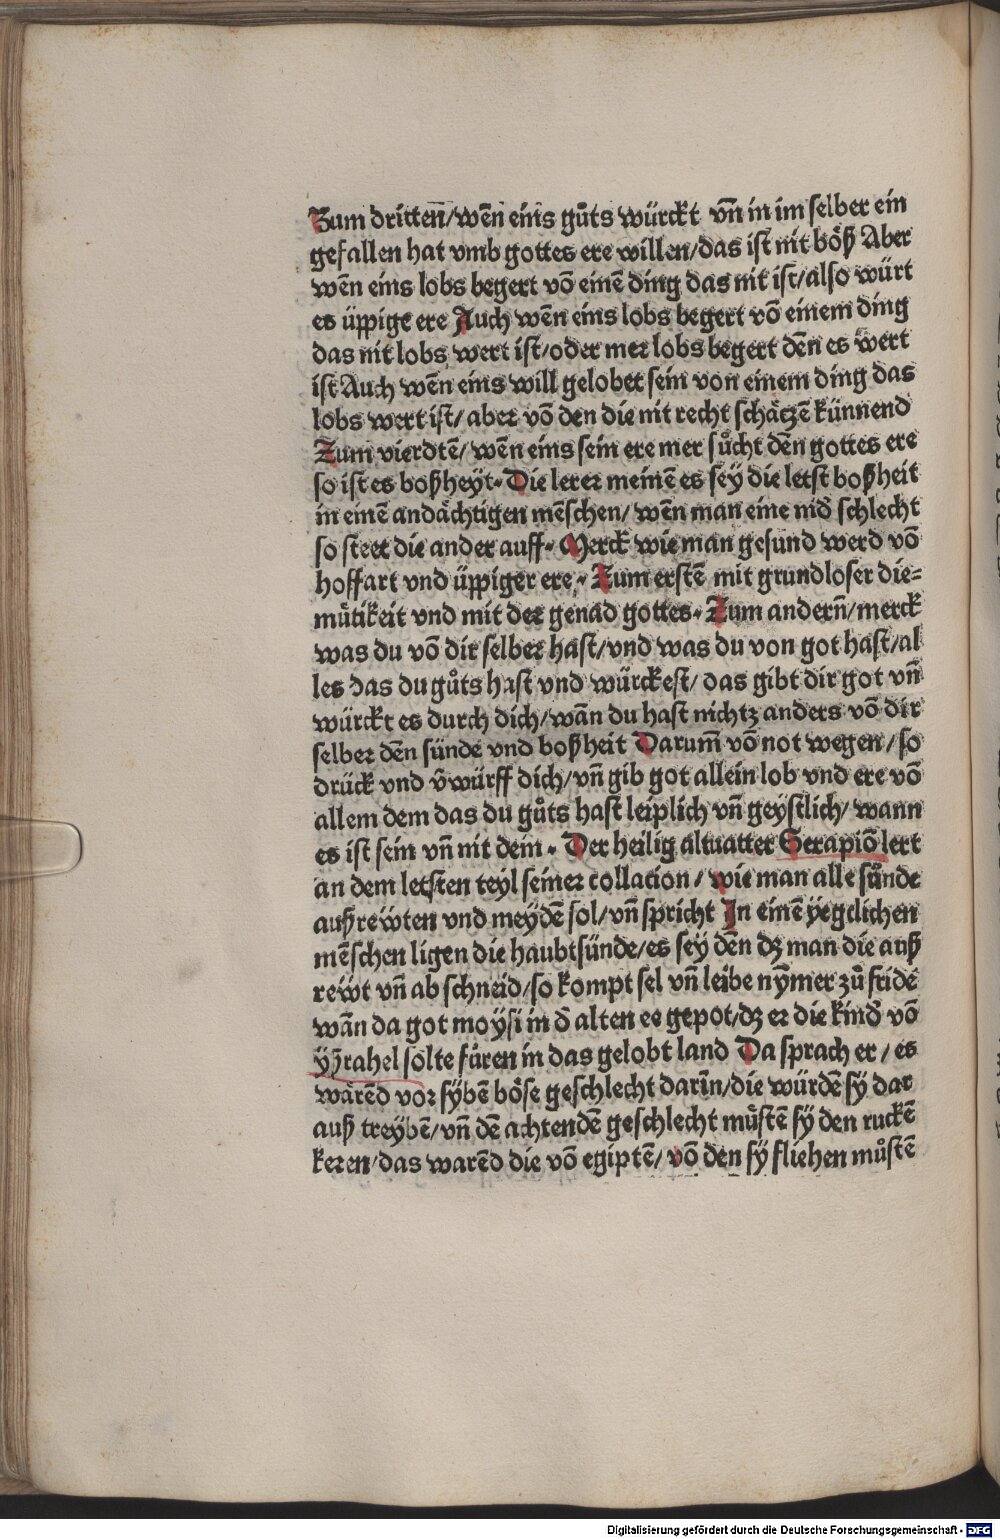 Zum dritten̄/wēn eins gůts würckt vn̄ in im selber ein
gefallen hat vmb gottes ere willen/das ist nit böß Aber
wēn eins lobs begert vō einē ding das nit ist/also würt
es üppige ere Auch wēn eins lobs begert vō einem ding
das nit lobs wert ist/oder mer lobs begert dēn es wert
ist Auch wēn eins will gelobet sein von einem ding das
lobs wert ist/ aber vō den die nit recht schätzē künnend
Zum vierdtē/ wēn eins sein ere mer sůcht dēn gottes ere
so ist es boßheyt. Die lerer meinē es sey die letst boßheit
in einē andächtigen mēschen/ wēn man eine nid̄ schlecht
so steet die ander auff. Merck wie man gesund werd vō
hoffart vnd üppiger ere. Zum erstē mit grundloser die=
mütikeit vnd mit der genad gottes. Zum andern̄/merck
was du vō dir selber hast/vnd was du von got hast/al
les das du gůts hast vnd würckest/ das gibt dir got vn̄
würckt es durch dich/wān du hast nichtz anders vō dir
selber dēn sünde vnd boßheit Darum̄ vō not wegen/so
drück vnd v̄würff dich/vn̄ gib got allein lob vnd ere vō
allem dem das du gůts hast leiplich vn̄ geystlich/ wann
es ist sein vn̄ nit dein. Der heilig altuatter Serapiō lert
an dem letsten teyl seiner collacion/ wie man alle sünde
außrewten vnd meydē sol/vn̄ spricht In einē yegclichen
mēschen ligen die haubtsünde/es sey dēn dz man die auß
rewt vn̄ ab schneid/so kompt sel vn̄ leibe nȳmer zů fridē
wān da got moysi in d̄ alten ee gepot/dz er die kind̄ vō
yßrahel solte füren in das gelobt land Da sprach er/ es
wärēd vor sybē böse geschlecht darīn/die würdē sy dar
auß treybē/vn̄ dē achtendē geschlecht můstē sy den ruckē
keren/das warēd die vō egiptē/ vō den sy fliehen můstē
Digitalisierung gefördert durch die Deutsche Forschungsgemeinschaft - DFG